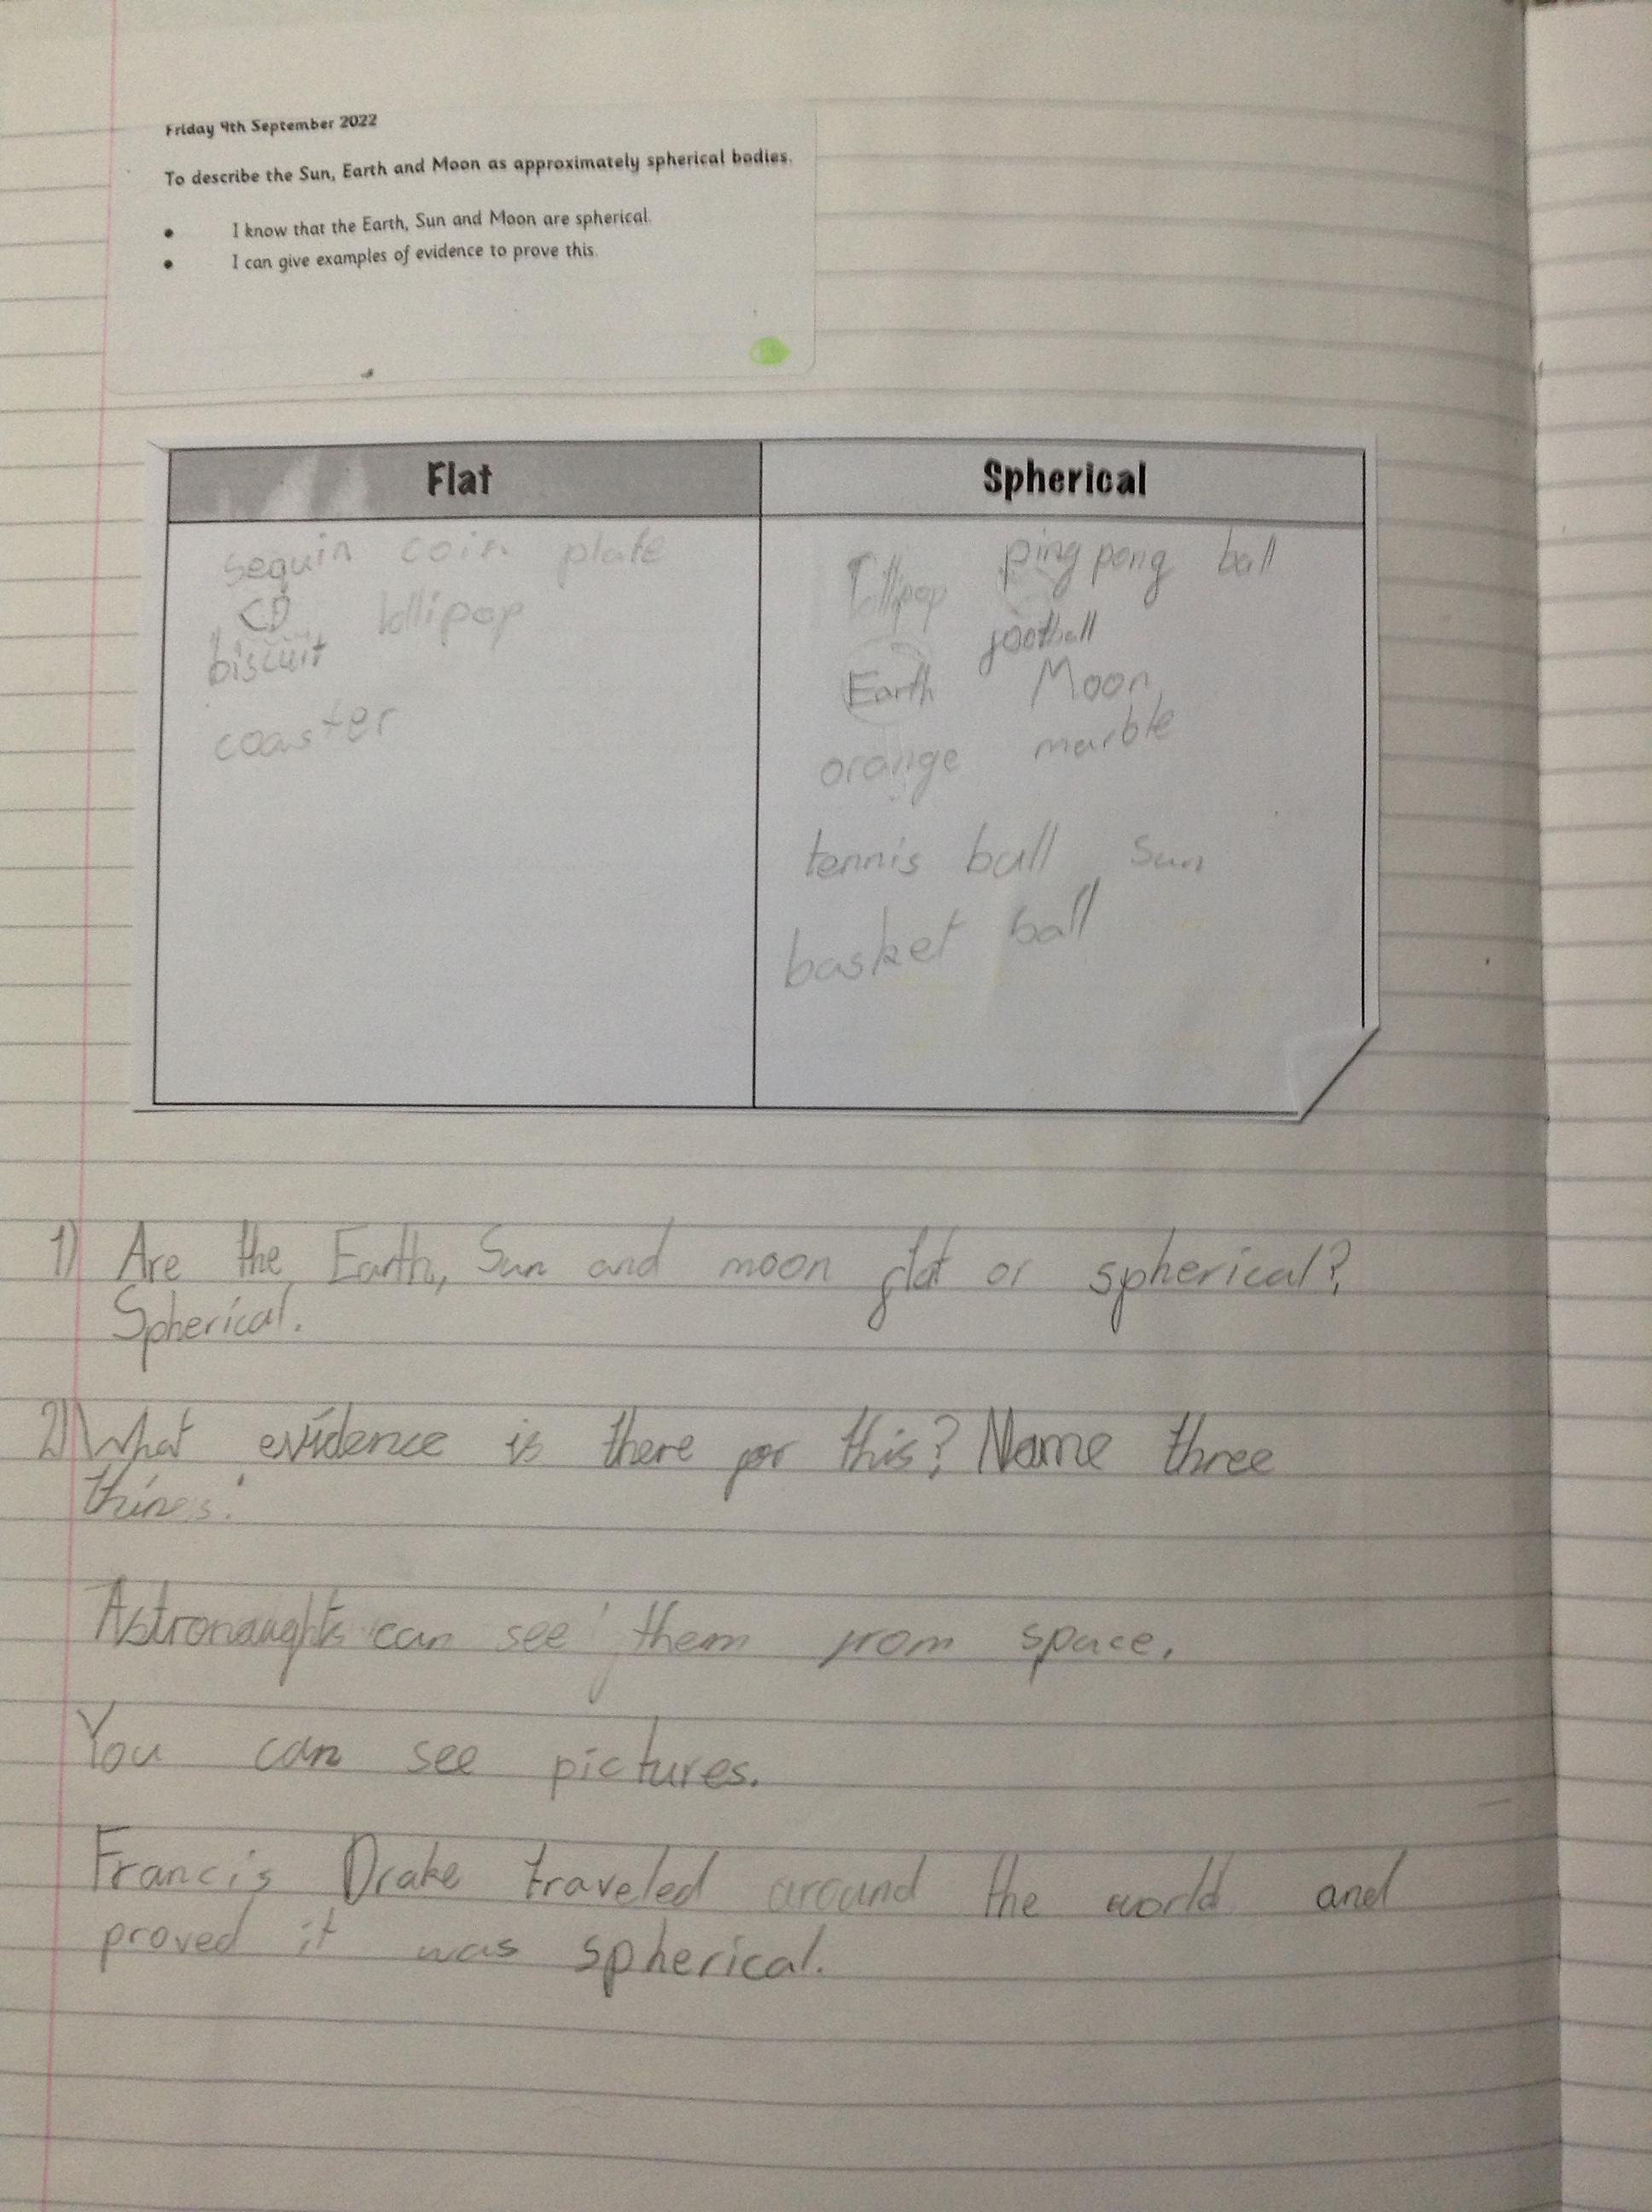 Friday 9th September 2022
To describe the Sun, Earth and Moon as approximately spherical bodies.
• I know that the Earth, Sun and Moon are spherical.
• I can give examples of evidence to prove this.
Flat
sequin coin plate
CD lollipop
biscuit
coaster
Spherical
lollipop ping pong ball
football
Earth Moon
orange marble
tennis ball Sun
basket ball
1) Are the Earth, Sun and moon flat or spherical?
Spherical.
2) What evidence is there for this? Name three
things.
Astronaughts can see them from space.
You can see pictures.
Francis Drake traveled around the world and
proved it was spherical.